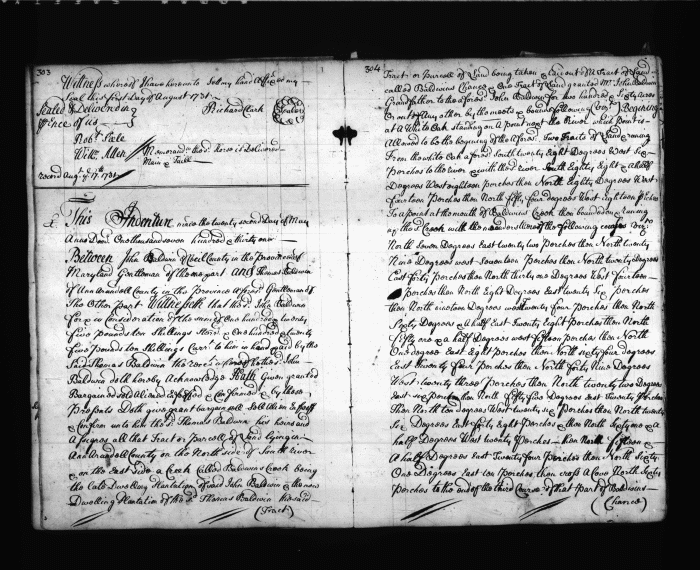 303
Wittness whereof I have hereunto Sett my hand & Affix'd my
Seal this first Day of August 1731
Sealed & Deliver'd in
Richard Clark
Sence of us
Robt. Hale
Wm. Allen
Memorand. these Deliver'd
record Augt. ye 17th 1731
This Indenture made the twenty second Day of May
Anno Dom. One thousand seven hundred & thirty one
Between John Baldwin of Cecil County in the province of
Maryland Gentleman of the one part and Thomas Baldwin
of Ann Arundell County in the Province Afores'd Gentleman of
The Other Part Wittnesseth that the sd. John Baldwin
for & in Consideration of the sum of One hundred twenty
five pounds ten Shillings Sterl. & One hundred & twenty
five pounds ten Shillings Curr. to him in hand paid by the
Said Thomas Baldwin the rect. whereof he the sd. John
Baldwin doth hereby Acknowledge Hath Given granted
Bargained Sold Aliened Enfeoffed & Confirmed & by these
Presents Doth give grant bargain sell Alien Enfeoff
& Confirm unto him the sd. Thomas Baldwin his heirs and
Assignes all that Tract or Parcell of Land lying in
Ann Arundell County on the North side of South River
& on the East side a Creek Called Baldwins Creek being
the late Dwelling Plantation of said John Baldwin & the now
Dwelling Plantation of the sd. Thomas Baldwin the said
(Tract)
304
Tract or Parcell of Land being taken & laid out of A Tract of Land
called Baldwins Chance & One Tract of Land granted Mr. John Baldwin
Grandfather to the afores. John Baldwin for three hundred & Sixty Acres
Or Any other by the meets & bounds following (viz) Beginning
at A White Oak standing on A point next the River which Point is
Allowed to be the begining of the afores. Two Tracts of Land & runing
From the white Oak afores. South twenty Eight Degrees West Six
Perches to the River & with the river South Eighty Eight & A half
Degrees West eighteen perches then North Eighty Degrees West
fourteen Perches then North fifty four degrees West Eighteen Perches
To a point at the mouth of Baldwins Creek then bounding & runing
up the Creek with the meanders thereof the following courses Viz.
North Seven Degrees East twenty two perches then North twenty
Nine Degrees west Seventeen perches then North Eighty Degrees
East forty Perches then North thirty nine Degrees West fourteen
Perches then North Eight Degrees East twenty Six perches
then North nineteen Degrees west twenty four perches then North
Sixty Degrees & A half East Twenty Eight perches then North
fifty one & a half Degrees west fifteen perches then North
One degree East Eight Perches then North sixty four degrees
East twenty four Perches then North forty Nine Degrees
West twenty three Perches then North twenty two Degrees
East six Perches then North fifty five Degrees East Twenty Perches
Then North ten Degrees West twenty six Perches then North twenty
Six Degrees East forty Eight Perches then North sixty one & a
half Degrees West twenty Perches then North fifteen &
A half Degrees East Twenty four Perches then North Sixty
One Degrees East ten Perches then cross A Cove North Sixty
Perches to the end of the third Course of that part of Baldwins
(Chance)